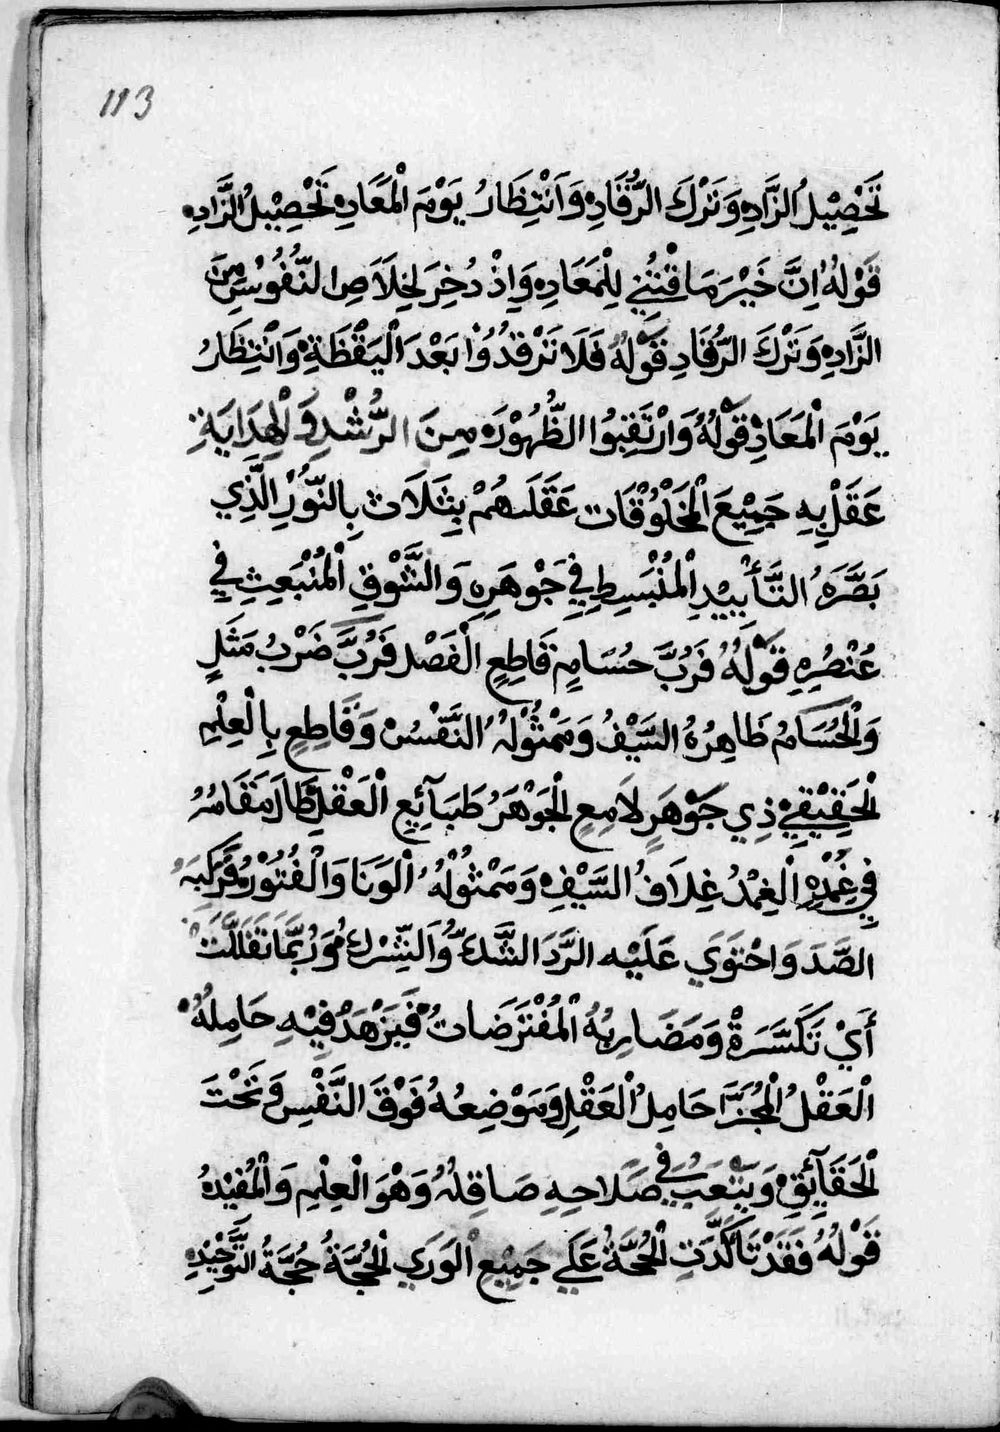 113
تَحْصِيْلُ الزَّادِ وَتَرْكَ الرُّقَادِ وَانْتِظَارُ يَوْمَ الْمَعَادِ تَحْصِيْلُ الزَّادِ
قَوْلُهُ اِنَّ خَيْرَ مَا قْتُنِي لِلْمَعَادِ وَاِذْ دُخِرَ لِخِلَاصِ النُّفُوْسِ مِنَ
الزَّادِ وَتَرْكَ الرُّقَادِ قَوْلُهُ فَلَا تَرْقُدُوْا بَعْدَ الْيَقْظَةِ وَانْتِظَارُ
يَوْمَ الْمَعَادِ قَوْلُهُ وَارْتَقِبُوا الظُّهُوْرَ مِنَ الرُّشْدِ وَالْهِدَايَةِ
عَقَلْ بِهِ جَمِيْعَ الْمَخْلُوْقَات عَقَلَهُمْ بِثَلَاث بِالنُّوْرِ الَّذِي
بَصَّرَهُ التَّأْيِيْدِ الْمُنْبَسِطِ فِي جَوْهَرِهِ وَالشَّوْقِ الْمُنْبَعِثِ فِي
عُنْصُرِهِ قَوْلُهُ فَرُبَّ حُسَامٍ قَاطِعٍ الْفَصْل فَرُبَّ ضَرْبُ مَثَلٍ
وَالْحُسَامُ ظَاهِرُهُ السَّيْفُ وَمَمْثُوْلُهُ النَّفْسُ وَقَاطِعٍ بِالْعِلْمِ
الْحَقِيْقِي ذِي جَوْهَرٍ لَامِعٍ الْجَوْهَرُ طَبَآئِعِ الْعَقْلِ طَالَ مَقَامُهُ
فِي غِمْدِهِ الْغِمْدُ غِلَافُ السَّيْفِ وَمَمْثُوْلُهُ الْوَنَا وَالْفُتُوْرُ فَرَكِبَهُ
الصَّدَ وَاحْتَوَي عَلَيْهِ الرَّدَ الشَّكّ وَالشِّرْك وَرُبَّمَا تَفَلَّلَتْ
أَيْ تَكَسَّرَةْ وَمَضَارِبُهُ الْمُفْتَرَضَاتُ فَيَزْهَدْ فِيْهِ حَامِلُهُ
الْعَقْلُ الْمُجَزَّا حَامِلُ الْعَقْلِ وَمَوْضِعُهُ فَوْقَ النَّفْسِ وَتَحْتَ
الْحَقَآئِقِ وَيَتْعَبُ فِي صَلَاحِهِ صَاقِلُهُ وَهْوَ الْعِلْمِ وَالْمُفِيْدُ
قَوْلُهُ فَقَدْ تَاكَّدَتِ الْحُجَّةُ عَلَي جَمِيْعِ الْوَرَي الْحُجَّةُ حُجَّةُ التَّوْحِيْدِ